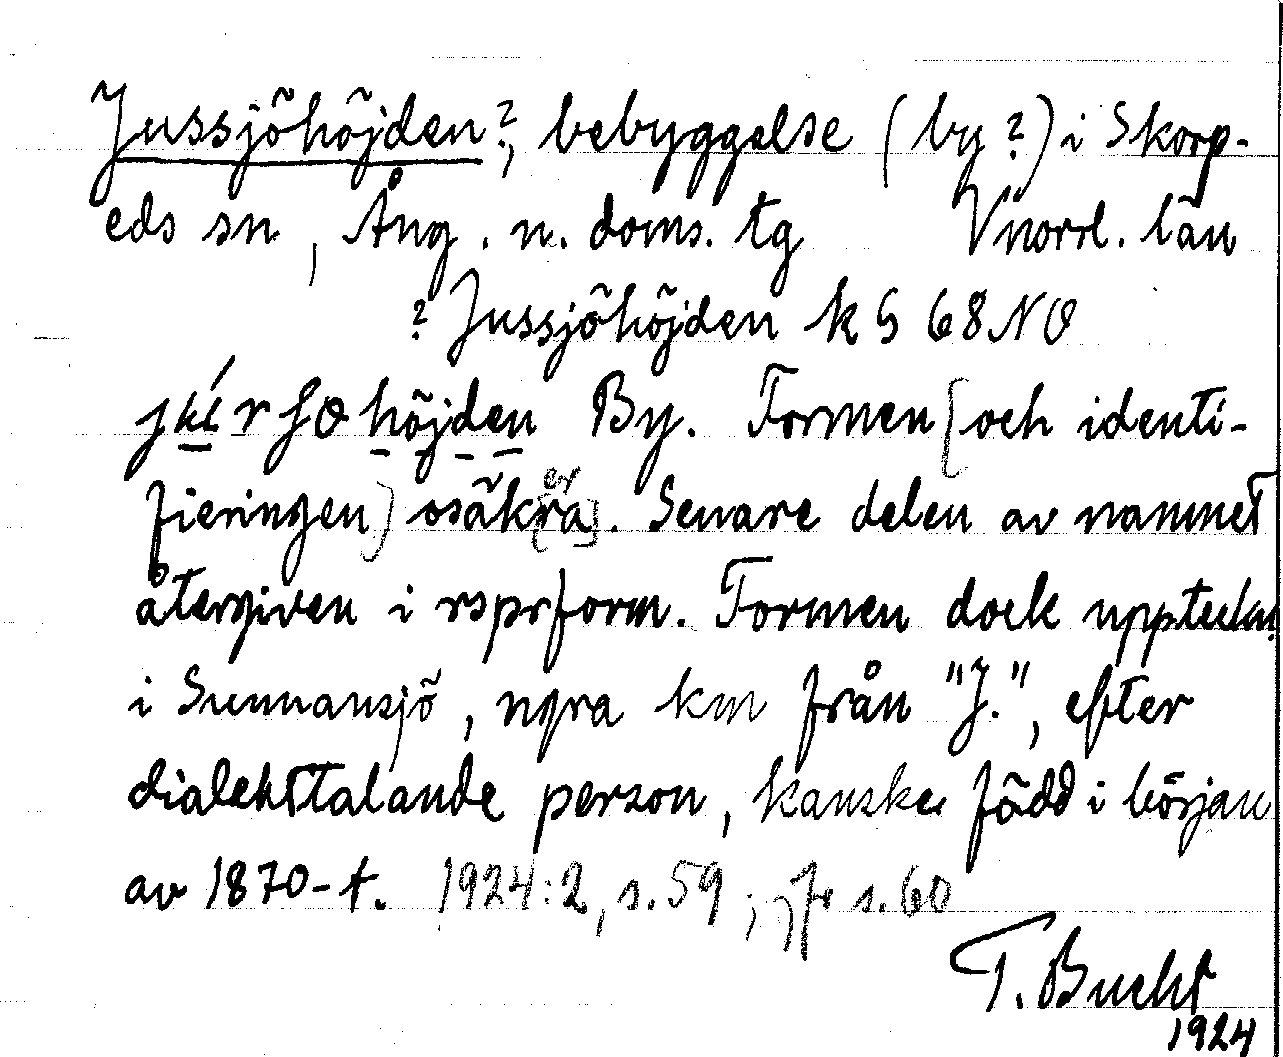 Jussjöhöjden?, bebyggelse (by?) i Skorp-
eds sn, Ång. n. doms. tg Vnorrl. län
? Jussjöhöjden k S 68 NO
höjden By. Formen [och identi-
fieringen] osäkra er. Senare delen av namnet
återgiven i rsprform. Formen dock uppteckn.
i Sunnansjö, ngra km från "J.", efter
dialekttalande person, kanske född i början
av 1870-t. 1924:2, s. 59; jfr s. 60
T. Bucht
1924